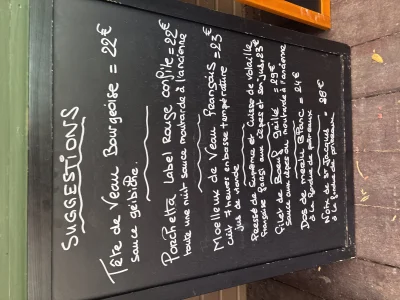 SUGGESTIONS
Tête de Veau Bourgeoise = 22€
sauce gribiche.
Porchetta Label Rouge confite = 22€
toute une nuit sauce moutarde à l'ancienne
Moelleux de Veau Français = 23€
cuit 7 heures en basse température
jus de viande
Pressé de Suprême et Cuisse de volaille
Française farci aux cèpes et son jus = 23€
Filet de Boeuf grillé = 29€
sauce aux cèpes ou moutarde à l'ancienne
Dos de merlu Blanc = 24€
à la fondue de poireaux
Noix de St Jacques = 28€
à la fondue de poireaux